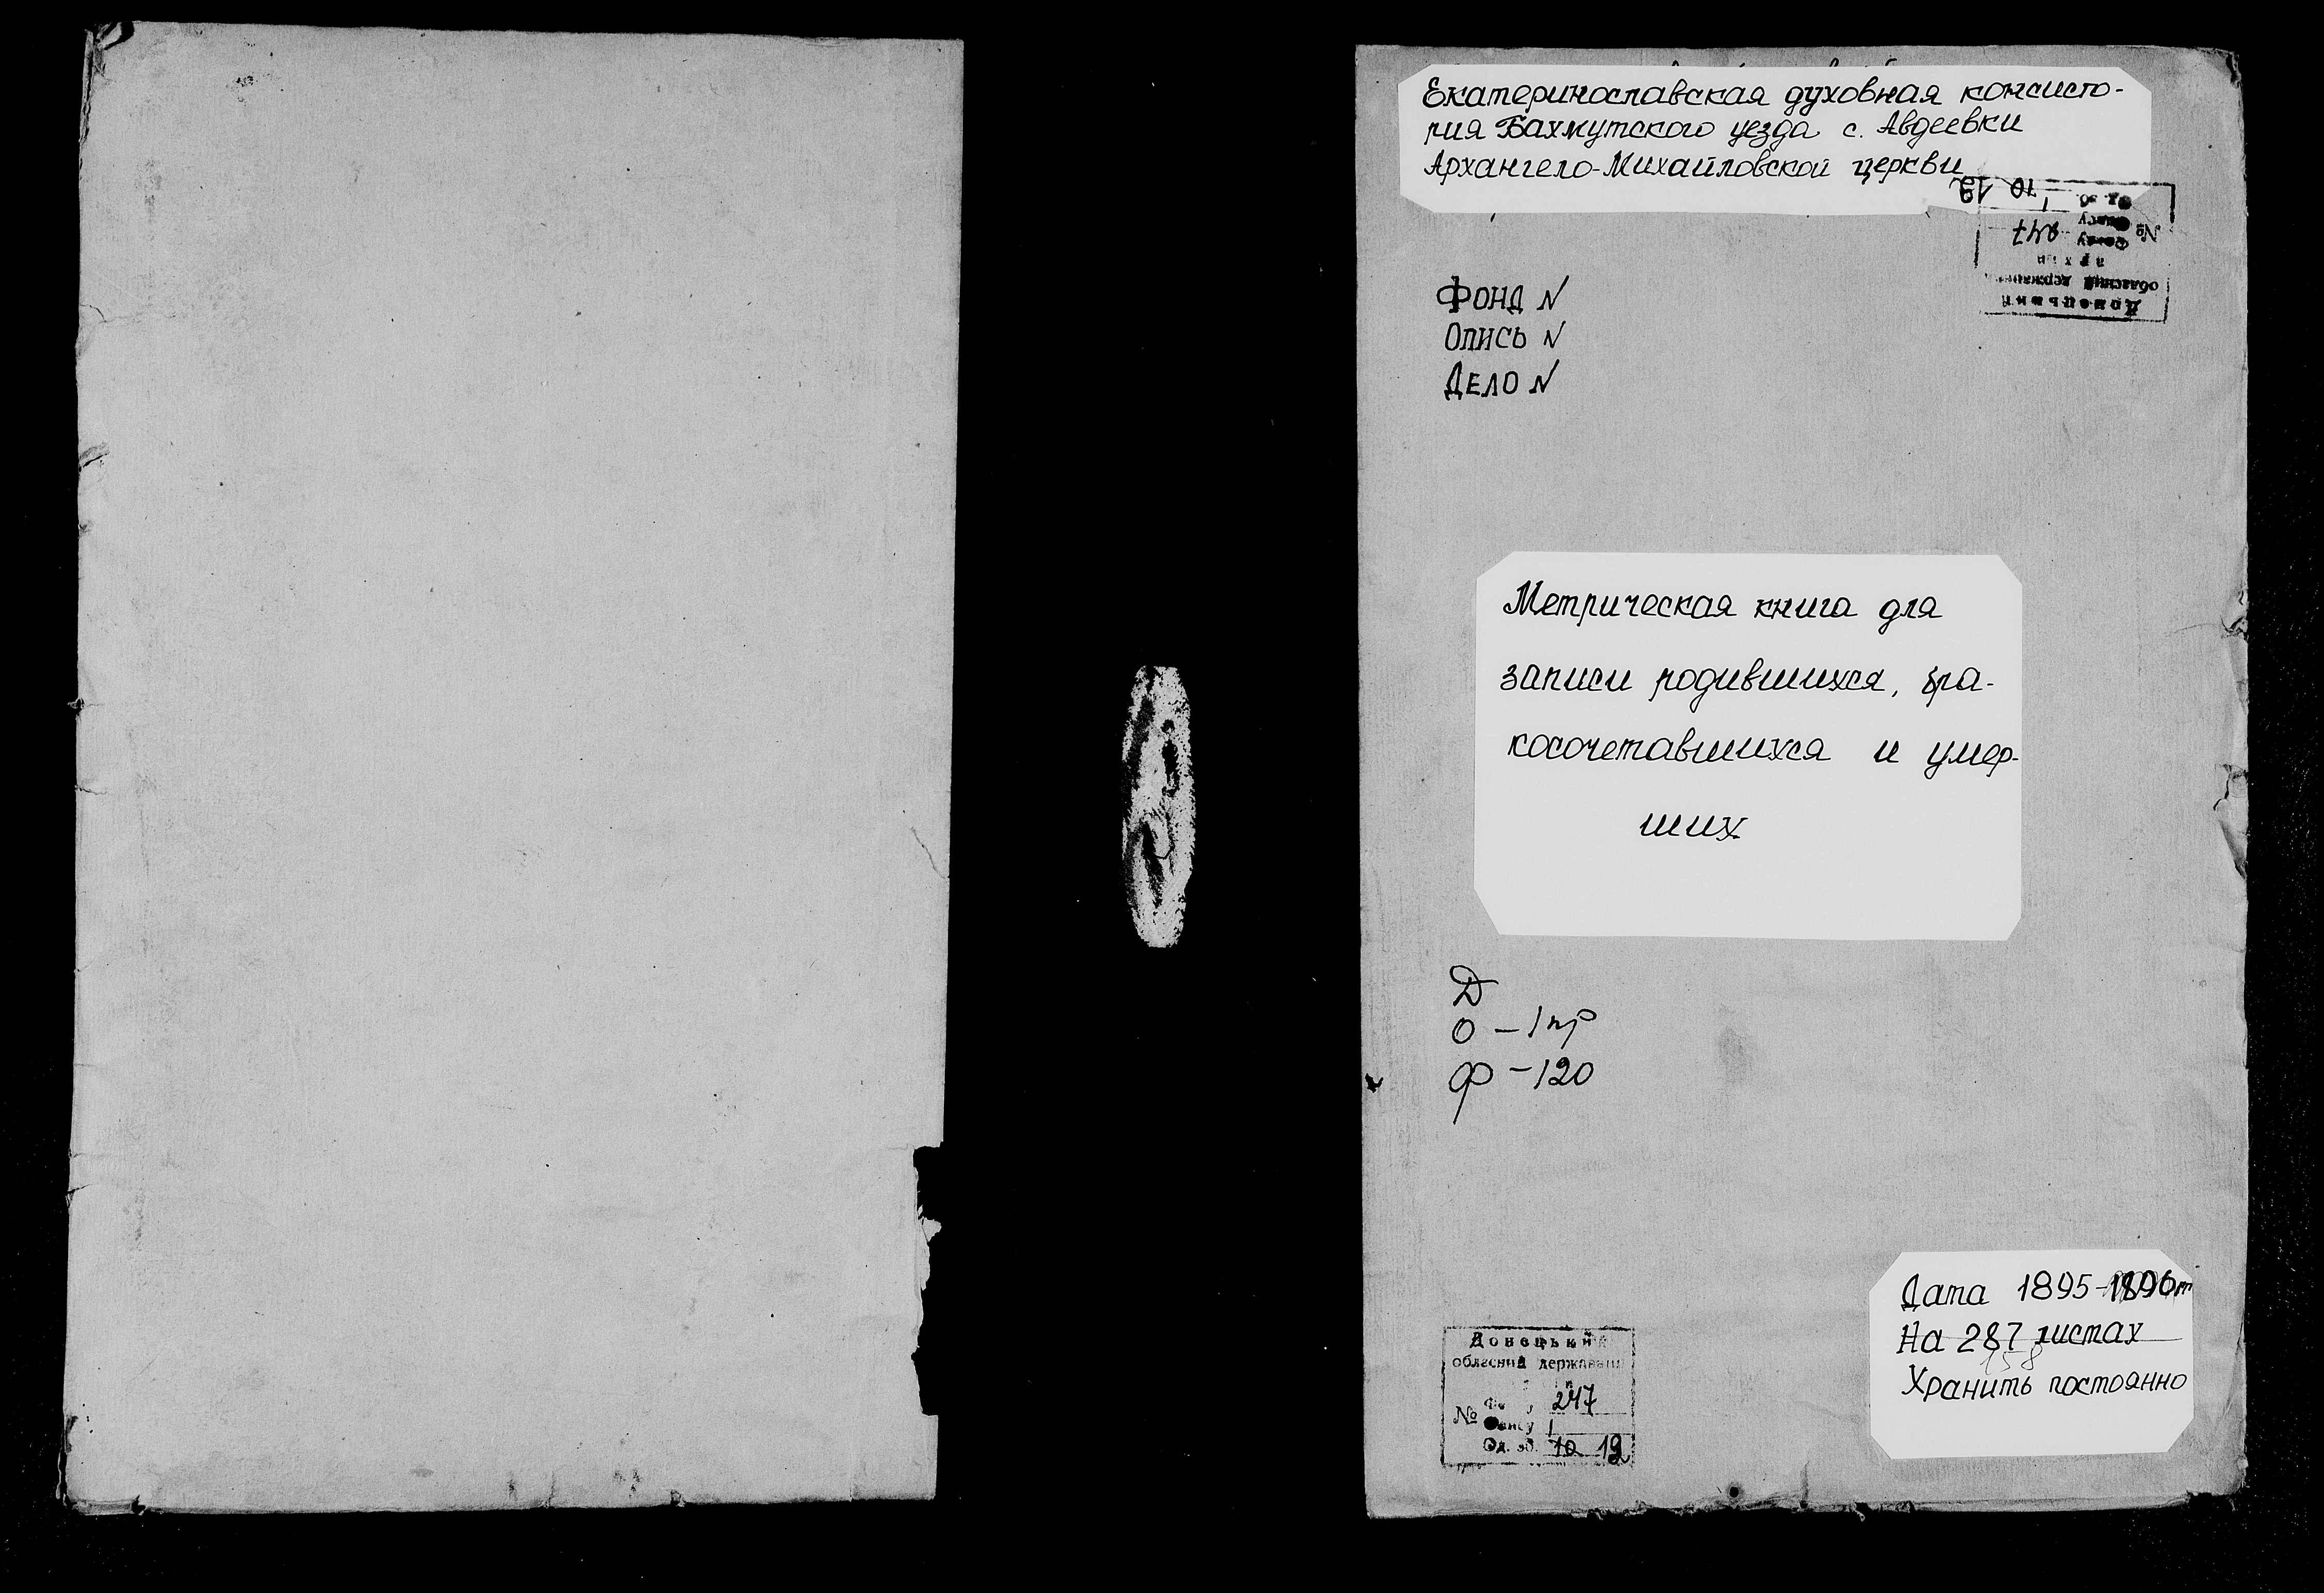 Екатеринославская духовная консисто-
рия Бахмутского уезда с. Авдеевки
Архангело-Михайловской церкви
Донецький
обласний державний
архів
№
Фонду 247
Опису 1
Од. зб. 10 12
Фонд N
Опись N
Дело N
Метрическая книга для
записи родившихся, бра-
косочетавшихся и умер-
ших
Д
О - 1 пр
Ф - 120
Дата 1895-1896гг
На 287 листах
158
Хранить постоянно
Донецький
обласний державний
№
Фонду 247
Опису 1
Од. зб. 10 12